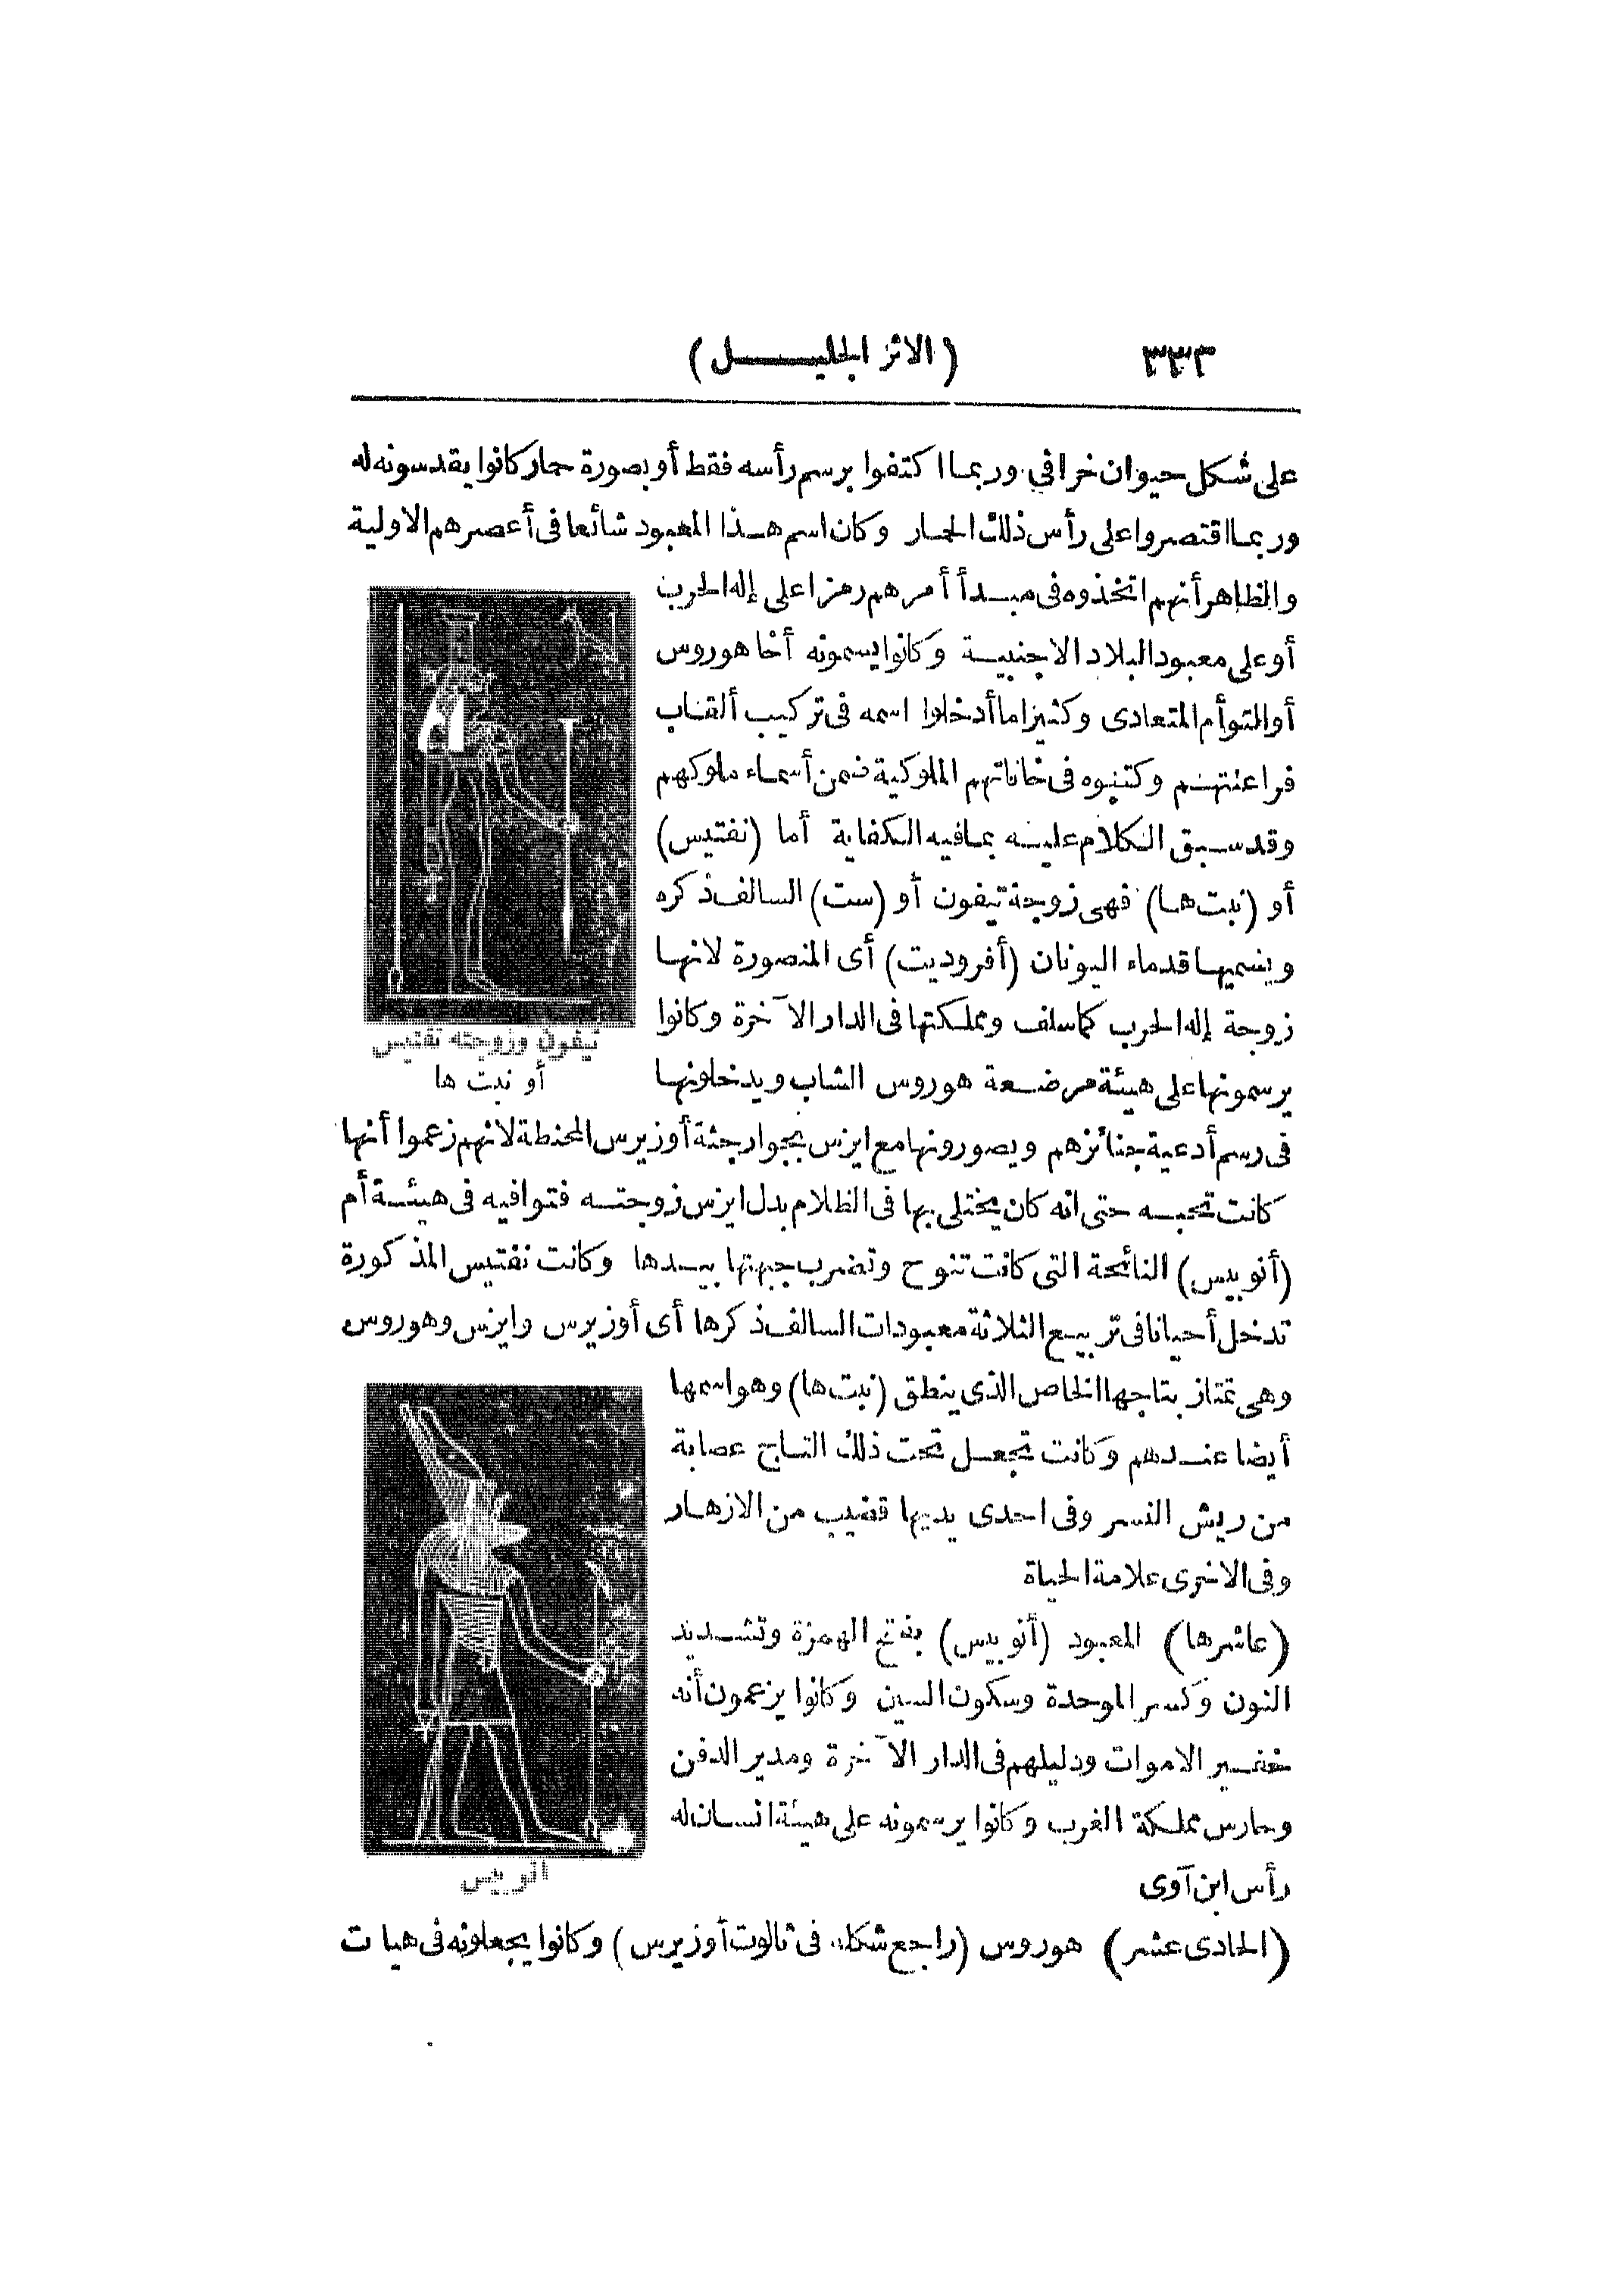 ٣٣٣ (الاثر الجليل)
على شكل حيوان خرافي وربما اكتفوا برسم رأسه فقط أو بصورة حمار كانوا يقدسونه له
وربما اقتصروا على رأس ذلك الحمار وكان اسم هذا المعبود شائعا فى أعصرهم الاولية
والظاهر أنهم اتخذوه فى مبدأ أمرهم رمزا على إله الحرب
أو على معبود البلاد الاجنبية وكانوا يسمونه أخا هوروس
أو التوأم المتعادى وكثيرا ما أدخلوا اسمه فى تركيب ألقاب
فراعنتهم وكتبوه فى خاناتهم الملوكية ضمن أسماء ملوكهم
وقد سبق الكلام عليه بما فيه الكفاية أما (نفتيس)
أو (نبت ها) فهى زوجة تيفون أو (ست) السالف ذكره
ويسميها قدماء اليونان (أفروديت) أى المنصورة لانها
زوجة إله الحرب كما سلف ومملكتها فى الدار الآخرة وكانوا
يرسمونها على هيئة مرضعة هوروس الشاب ويدخلونها
تيفون وزوجته نفتيس
أو نبت ها
فى رسم أدعية جنائزهم ويصورونها مع ايزس بجوار جثة أوزيرس المحنطة لانهم زعموا أنها
كانت تحبه حتى انه كان يختلى بها فى الظلام بدل ايزس زوجته فتوافيه فى هيئة أم
(أنوبيس) النائحة التى كانت تنوح وتضرب جبهتها بيدها وكانت نفتيس المذكورة
تدخل أحيانا فى تربيع الثلاثة معبودات السالف ذكرها أى أوزيرس وايزس وهوروس
وهى تمتاز بتاجها الخاص الذى ينطق (نبت ها) وهو اسمها
أيضا عندهم وكانت تجعل تحت ذلك التاج عصابة
من ريش النسر وفى احدى يديها قضيب من الازهار
وفى الاخرى علامة الحياة
(عاشرها) المعبود (أنوبيس) بفتح الهمزة وتشديد
النون وكسر الموحدة وسكون السين وكانوا يزعمون أنه
خفير الاموات ودليلهم فى الدار الآخرة ومدير الدفن
وحارس مملكة الغرب وكانوا يرسمونه على هيئة انسان له
رأس ابن آوى
انوبيس
(الحادى عشر) هوروس (راجع شكله فى ثالوث أوزيرس) وكانوا يجعلونه فى هيات